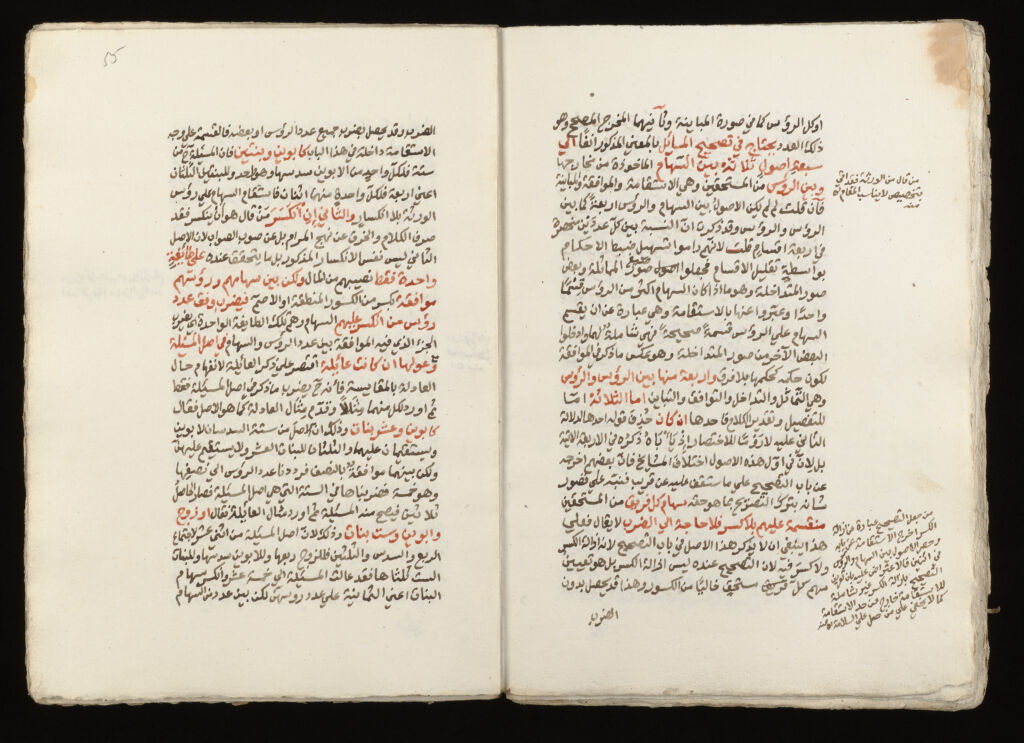 اوكل الرؤس كما في صورة المباينة وثانيهما المخرج المصحح وهو
ذلك العدد يحتاج في تصحيح المسائل بالمعنى المذكور انفا الى
سبعة اصول ثلاثة بين السهام الماخوذة من مخارجها
وبين الرؤس من المستحقين وهي الاستقامة والموافقة والمباينة
فان قلت لم لم يكن الاصول بين السهام والرؤس اربعة كما بين
الرؤس والرؤس وقد ذكرت ان النسبة بين كل عددين منحصرة
في اربعة اقسام قلت لانهم راموا تسهيل ضبط الاحكام
بواسطة تقليل الاقسام فجعلوا صورة المماثلة وبعض
صور المتداخلة وهو ما اذا كان السهام اكثر من الرؤس قسما
واحدا وعبروا عنها بالاستقامة وهي عبارة عن ان يقسم
السهام على الرؤس قسمة صحيحة فهي شاملة لهما وادخلوا
البعض الآخر من صور المتداخلة وهو عكس ما ذكر في الموافقة
لكون حكمه كحكمها بلا فرق واربعة منها بين الرؤس والرؤس
وهي التماثل والتداخل والتوافق والتباين اما الثلاثة اما
للتفصيل وتقدير الكلام فاحدها ان كان حذف قوله احدها لدلالة
الثاني عليه لا روما للاختصار اذ ياباه ذكره في الاربعة الآتية
بل لان في اول هذه الاصول اختلاف المشايخ فان بعضهم اخرجه
عن باب التصحيح على ما ستقف عليه عن قريب فنبه على قصور
شانه بترك التصريح بما هو حقه سهام كل فريق من المستحقين
منقسمة عليهم بلا كسر فلا حاجة الى الضرب لا يقال فعلى
هذا ينبغي ان لا يذكر هذا الاصل في باب التصحيح لانه ازالة الكسر
ولا كسر فيه لان التصحيح عنده ليس ازالة الكسر بل هو تعيين
سهم كل مستحق خاليا من الكسور وهذا قد يحصل بدون
الضرب
من قال من الورثة فقد اتى
بتخصيص لا يناسب المقام
منه
من جعل التصحيح عبارة عن ازالة
الكسر اخرج الاستقامة عن بابه
وحصر الاصول بين السهام والرؤس
في اثنين
التصحيح بازالة الكسر
للاستقامة خارج عن حد الاستقامة
كما لا يخفى على من
55
الضرب وقد يحصل بضرب جميع عدد الرؤس او بعضه فالقسمة على وجه
الاستقامة داخلة في هذا الباب كابوين وبنتين فان المسئلة ح من
ستة فلكل واحد من الابوين سدسها وهو واحد وللبنتين الثلثان
اعني اربعة فلكل واحدة منهما اثنان فاستقام السهام على رؤس
الورثة بلا انكسار والثاني ان انكسر من قال هو ان ينكسر فقد
صرف الكلام وانحرف عن نهج المرام بل عن صوب الصواب لان الاصل
الثاني ليس نفس الانكسار المذكور بل ما يتحقق عنده على طائفة
واحدة فقط نصيبهم من المال ولكن بين سهامهم ورؤسهم
موافقة بكسر من الكسور المنطقة او الاصم فيضرب وفق عدد
رؤس من انكسر عليهم السهام وهم تلك الطائفة الواحدة اي يضرب
الجزء الذي فيه الموافقة بين عدد الرؤس والسهام في اصل المسئلة
وعولها ان كانت عائلة اقتصر على ذكر العائلة لانفهام حال
العادلة بالمقايسة فانه ح يضرب ما ذكر في اصل المسئلة فقط
ثم اورد لكل منهما مثالا وقدم مثال العادلة كما هو الاصل فقال
كابوين وعشر بنات وذلك ان الاصل من ستة السدسان لابوين
ويستقيمان عليهما والثلثان للبنات العشر ولا يستقيم عليهن
ولكن بينهما موافقة بالنصف فرددنا عدد الرؤس الى نصفها
وهو خمسة فضربناها في الستة التي هي اصل المسئلة فصار الحاصل
ثلاثين فيصح منه المسئلة ثم اورد مثال العائلة فقال او زوج
وابوين وست بنات وذلك لان اصل المسئلة من اثني عشر لاجتماع
الربع والسدس والثلثين فللزوج ربعها وللابوين سدسها وللبنات
الست ثلثاها فقد عالت المسئلة الى خمسة عشر وانكسر سهام
البنات اعني الثمانية على عدد رؤسهن لكن بين عدد من السهام